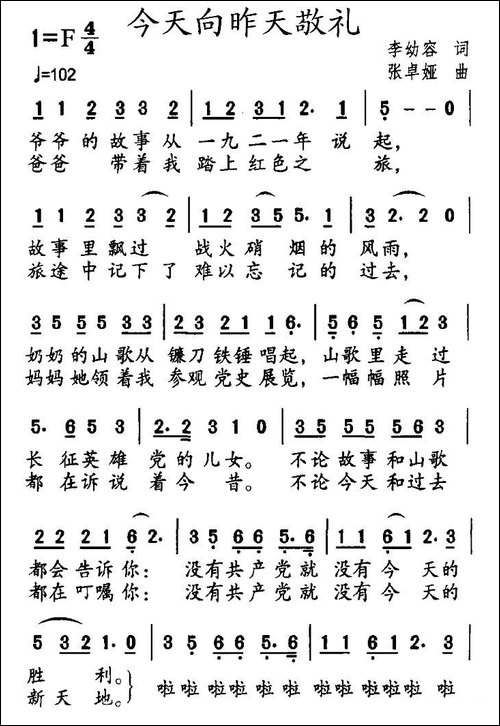 今天向昨天敬礼
1=F 4/4
李幼容 词
♩=102
张卓娅 曲
1 1 2 3 3 2 | 1 2 3 1 2. 1 | 5 - - 0
爷爷的故事从 一九二一年 说 起，
爸爸 带着我 踏上红色之 旅，
1 1 2 2 3 3 2 | 1 2 3 5 5. 1 | 3 2. 2 0
故事里飘过 战火硝烟的 风雨，
旅途中记下了 难以忘记的 过去，
3 5 5 5 3 3 | 2 3 2 1 1 6. | 5 6 5 1 2 3
奶奶的山歌从 镰刀铁锤唱起，山歌里走过
妈妈她领着我 参观党史展览，一幅幅照片
5. 6 5 3 | 2. 2 3 1 0 | 3 5 5 5 5 6 3
长征英雄 党的儿女。 不论故事和山歌
都在诉说 着今昔。 不论今天和过去
2 2 2 1 6 2. | 3 5 6 6 5. 6 | 1 1 6 1 2. 3
都会告诉你：没有共产党就 没有今天的
都在叮嘱你：没有共产党就 没有今天的
5 3 2 1. 0 | 3 5 6 6 5. 6 | 1 1 6 1 2. 3
胜 利。 啦 啦啦 啦 啦 啦 啦啦 啦 啦 啦
新天地。